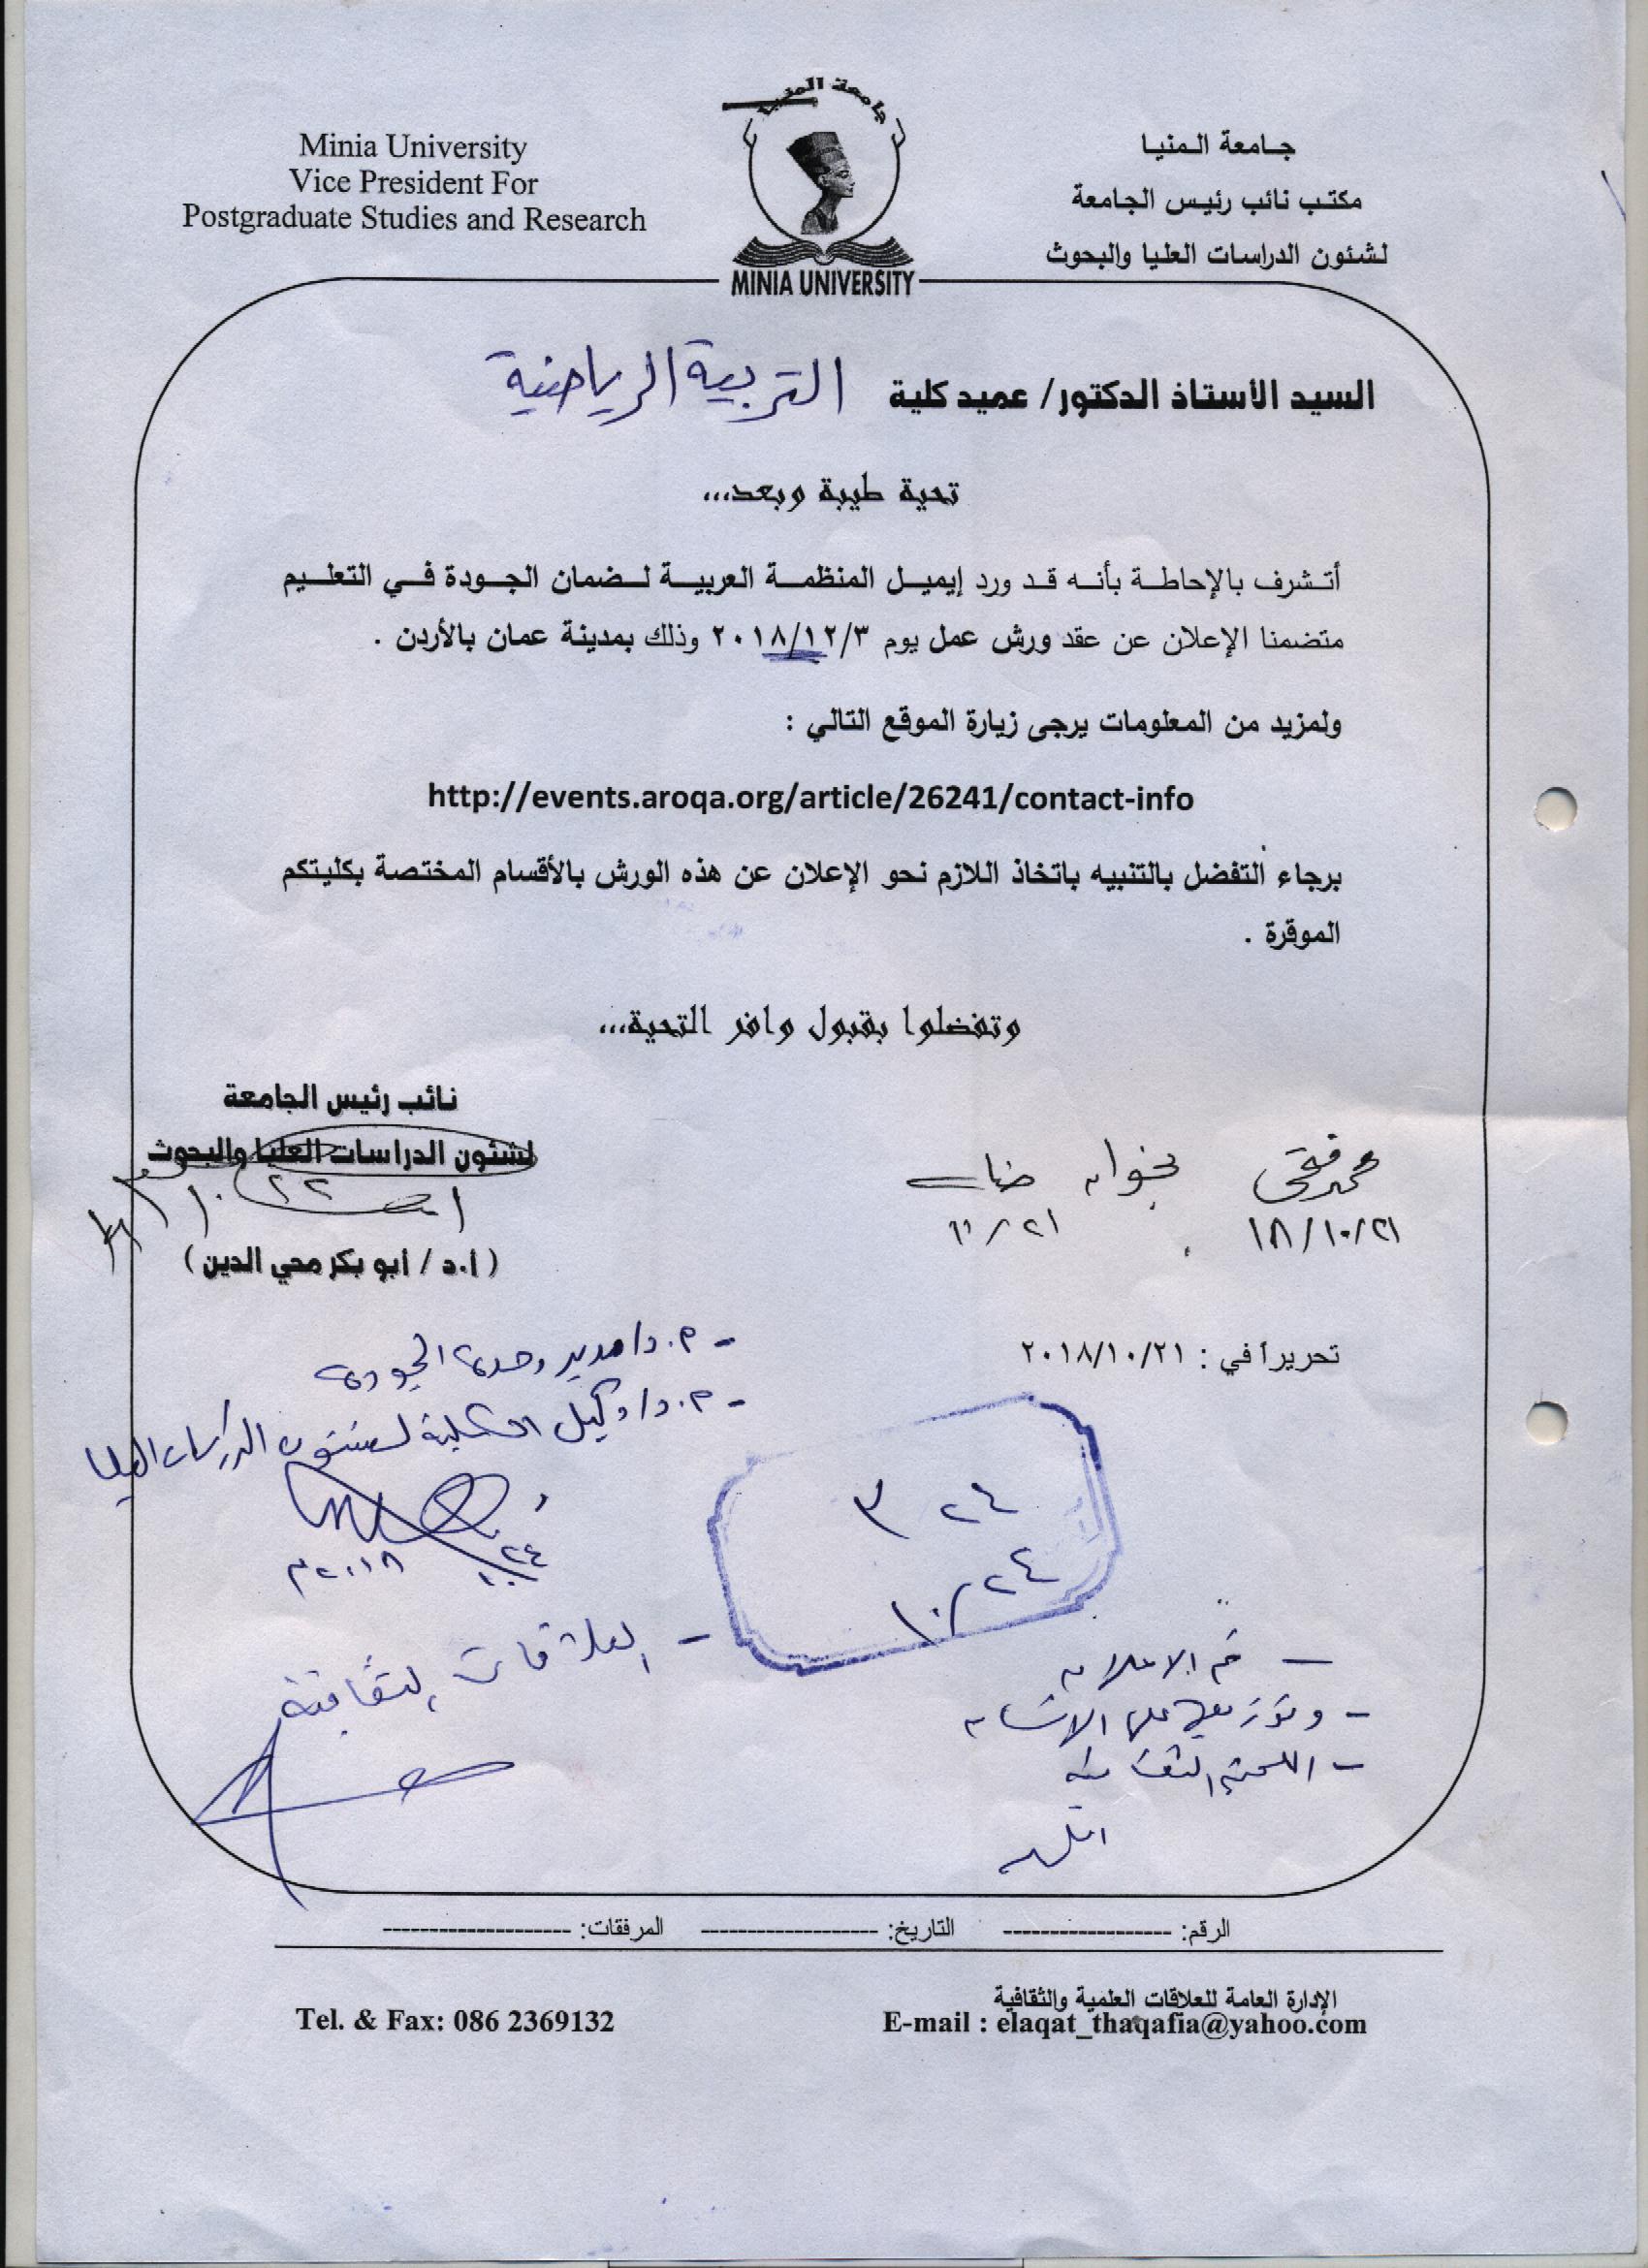 Minia University
Vice President For
Postgraduate Studies and Research
جامعة المنيا
MINIA UNIVERSITY
جامعة المنيا
مكتب نائب رئيس الجامعة
لشئون الدراسات العليا والبحوث
السيد الأستاذ الدكتور/ عميد كلية التربية الرياضية
تحية طيبة وبعد...
أتشرف بالإحاطة بأنه قد ورد إيميل المنظمة العربية لضمان الجودة في التعليم
متضمنا الإعلان عن عقد ورش عمل يوم ٢٠١٨/١٢/٣ وذلك بمدينة عمان بالأردن .
ولمزيد من المعلومات يرجى زيارة الموقع التالي :
http://events.aroqa.org/article/26241/contact-info
برجاء التفضل بالتنبيه باتخاذ اللازم نحو الإعلان عن هذه الورش بالأقسام المختصة بكليتكم
الموقرة .
وتفضلوا بقبول وافر التحية...
نائب رئيس الجامعة
لشئون الدراسات العليا والبحوث
(أ.د / أبو بكر محي الدين)
محمد فتحى
١٨/١٠/٢١
تحريراً في : ٢٠١٨/١٠/٢١
- م.د/ مدير وحدة الجودة
- م.د/ وكيل الكلية لشئون الدراسات العليا
٢٠١٨م
٢٤
١٠/٢٤
- العلاقات الثقافية
- تم الاعلان
- اللجنة الثقافية
الرقم: ------------------ التاريخ: ------------------- المرفقات: --------------------
الإدارة العامة للعلاقات العلمية والثقافية
E-mail : elaqat_thaqafia@yahoo.com
Tel. & Fax: 086 2369132